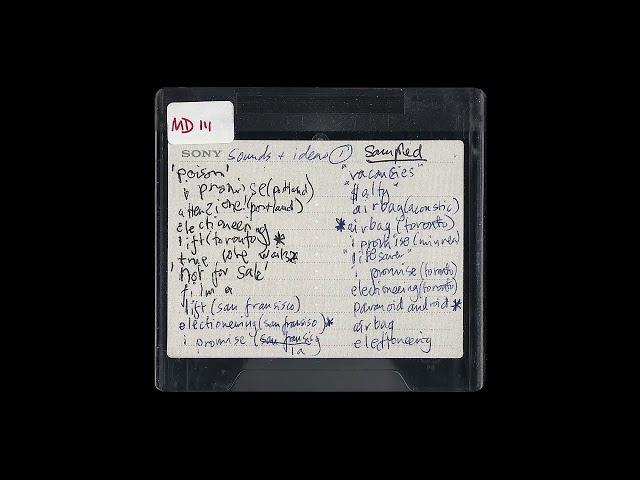 MD 111
SONY sounds + ideas 1 sampled
'poison'
i promise (portland)
attenzione! (portland)
electioneering
lift (toronto) *
true love waits
'not for sale'
film a
lift (san fransisco)
electioneering (san fransisco) *
i promise (san fransis
la
"vacancies"
"
airbag (acoustic)
* airbag (toronto)
i promise
"lifesaver"
i promise (toronto)
electioneering (toronto)
paranoid android *
airbag
electioneering